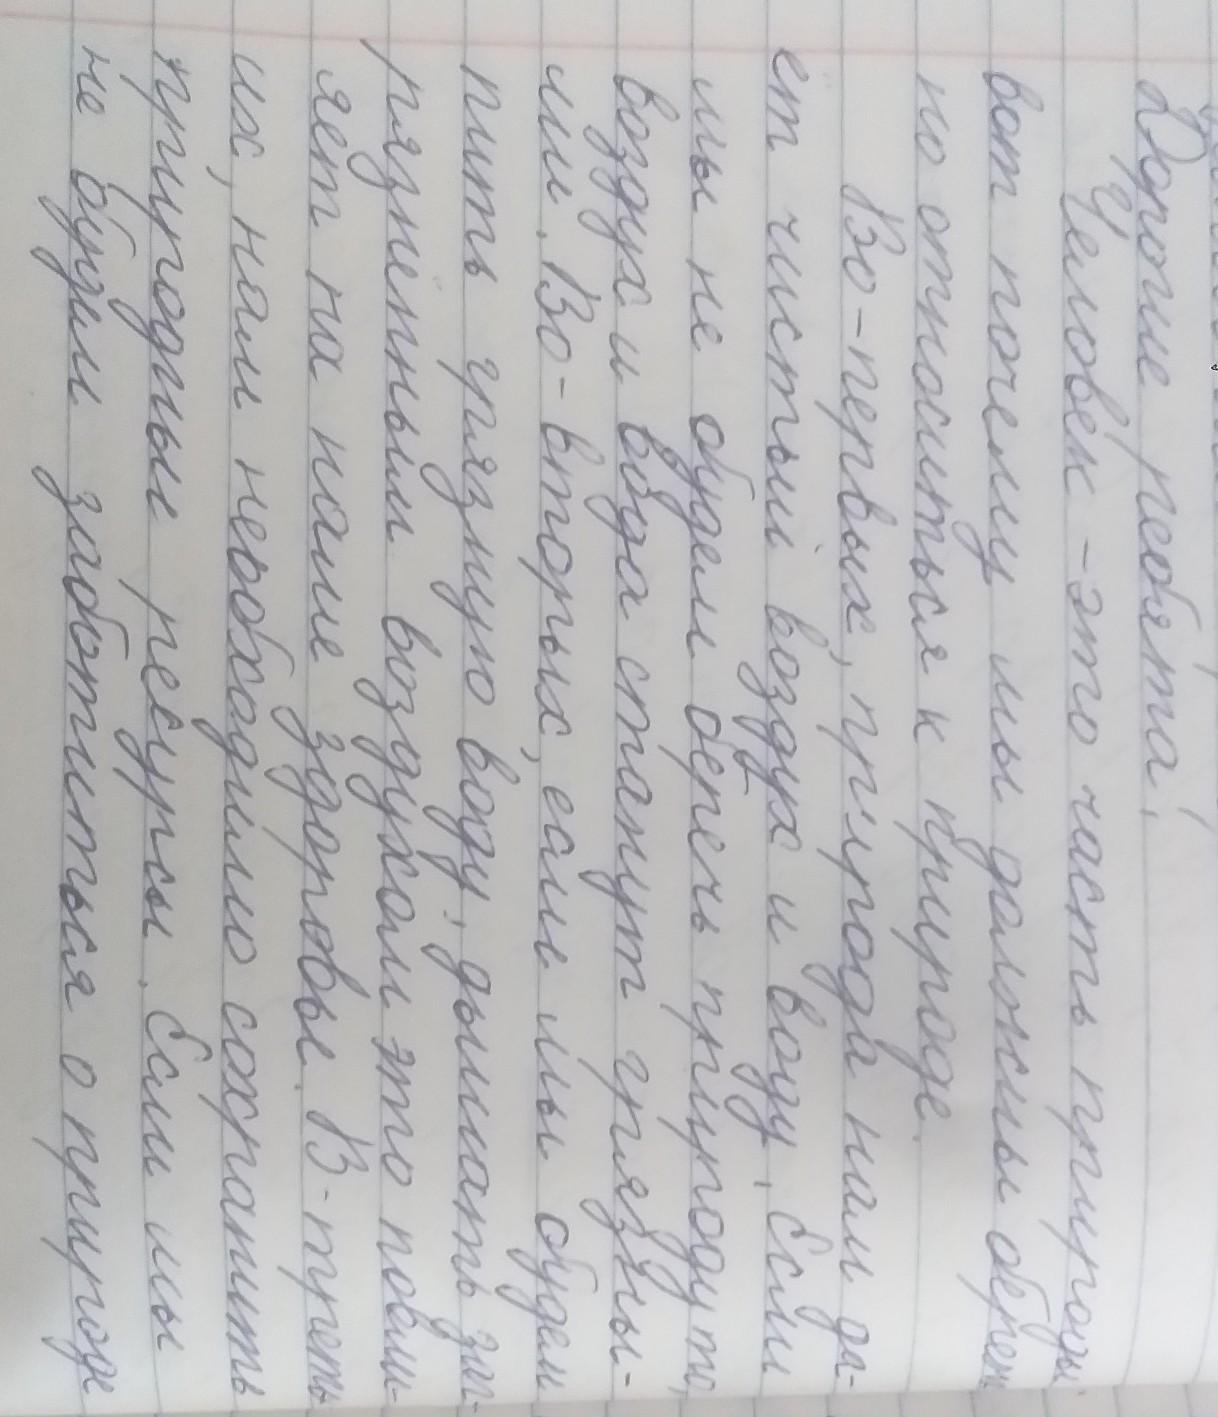 Дорогие ребята!
Человек - это часть природы
вот почему мы должны береж
но относиться к природе.
Во-первых, природа нам да-
ет чистый воздух и воду. Если
мы не будем беречь природу то,
воздух и вода станут грязны-
ми. Во-вторых, если мы будем
пить грязную воду, дышать заг-
рязненным воздухом это повли-
яет на наше здоровье. В-треть
их, нам необходимо сохранить
природные ресурсы. Если мы
не будем заботиться о природе